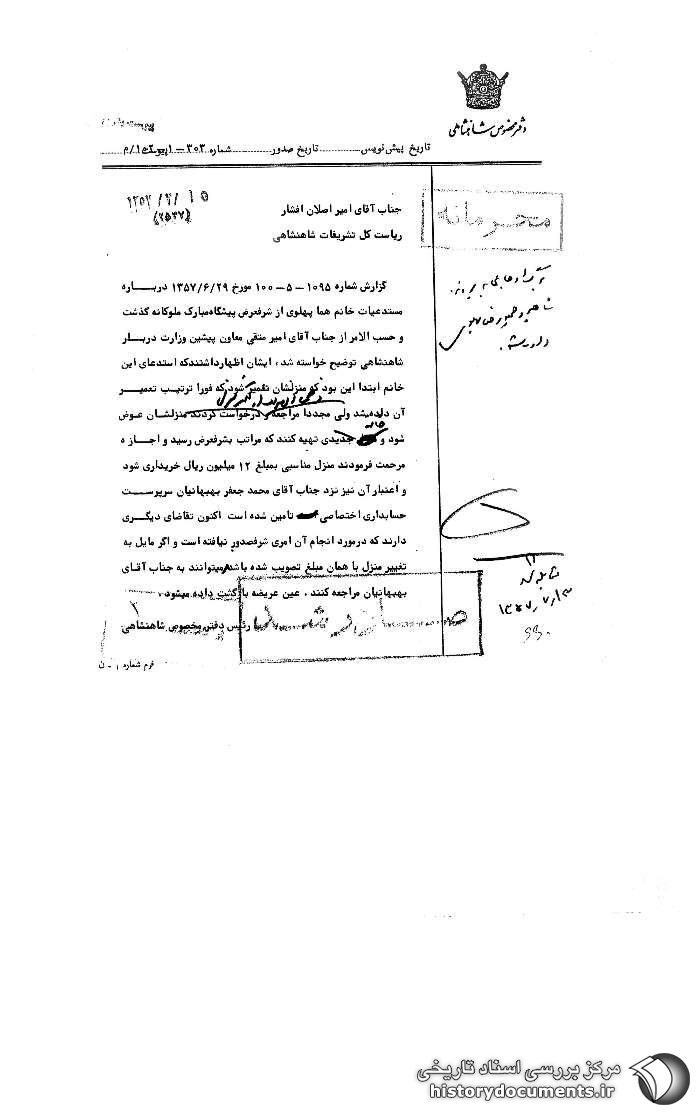 دفتر مخصوص شاهنشاهی
تاریخ پیش‌نویس .............. تاریخ صدور .............. شماره ۳۰۳ - /م
۱۵
(۲۵۳۷)
محرمانه
جناب آقای امیر اصلان افشار
ریاست کل تشریفات شاهنشاهی
گزارش شماره ۱۰۹۵ - ۵ - ۱۰۰ مورخ ۱۳۵۷/۶/۲۹ درباره
مستدعیات خانم هما پهلوی از شرفعرض پیشگاه مبارک ملوکانه گذشت
و حسب الامر از جناب آقای امیر متقی معاون پیشین وزارت دربار
شاهنشاهی توضیح خواسته شد، ایشان اظهارداشتندکه استدعای این
خانم ابتدا این بود که منزلشان تعمیر شود که فورا ترتیب تعمیر
آن داده شد ولی مجددا مراجعه و درخواست کردند منزلشان عوض
شود و خانه جدیدی تهیه کنند که مراتب بشرفعرض رسید و اجازه
مرحمت فرمودند منزل مناسبی بمبلغ ۱۲ میلیون ریال خریداری شود
و اعتبار آن نیز نزد جناب آقای محمد جعفر بهبهانیان سرپرست
حسابداری اختصاصی تامین شده است اکنون تقاضای دیگری
دارند که درمورد انجام آن امری شرفصدور نیافته است و اگر مایل به
تغییر منزل با همان مبلغ تصویب شده باشند میتوانند به جناب آقای
بهبهانیان مراجعه کنند. عین عریضه بازگشت داده میشود.
رئیس دفتر مخصوص شاهنشاهی
صادر شد
مقابله شد
فرم شماره ۱ - ن
مرکز بررسی اسناد تاریخی
historydocuments.ir